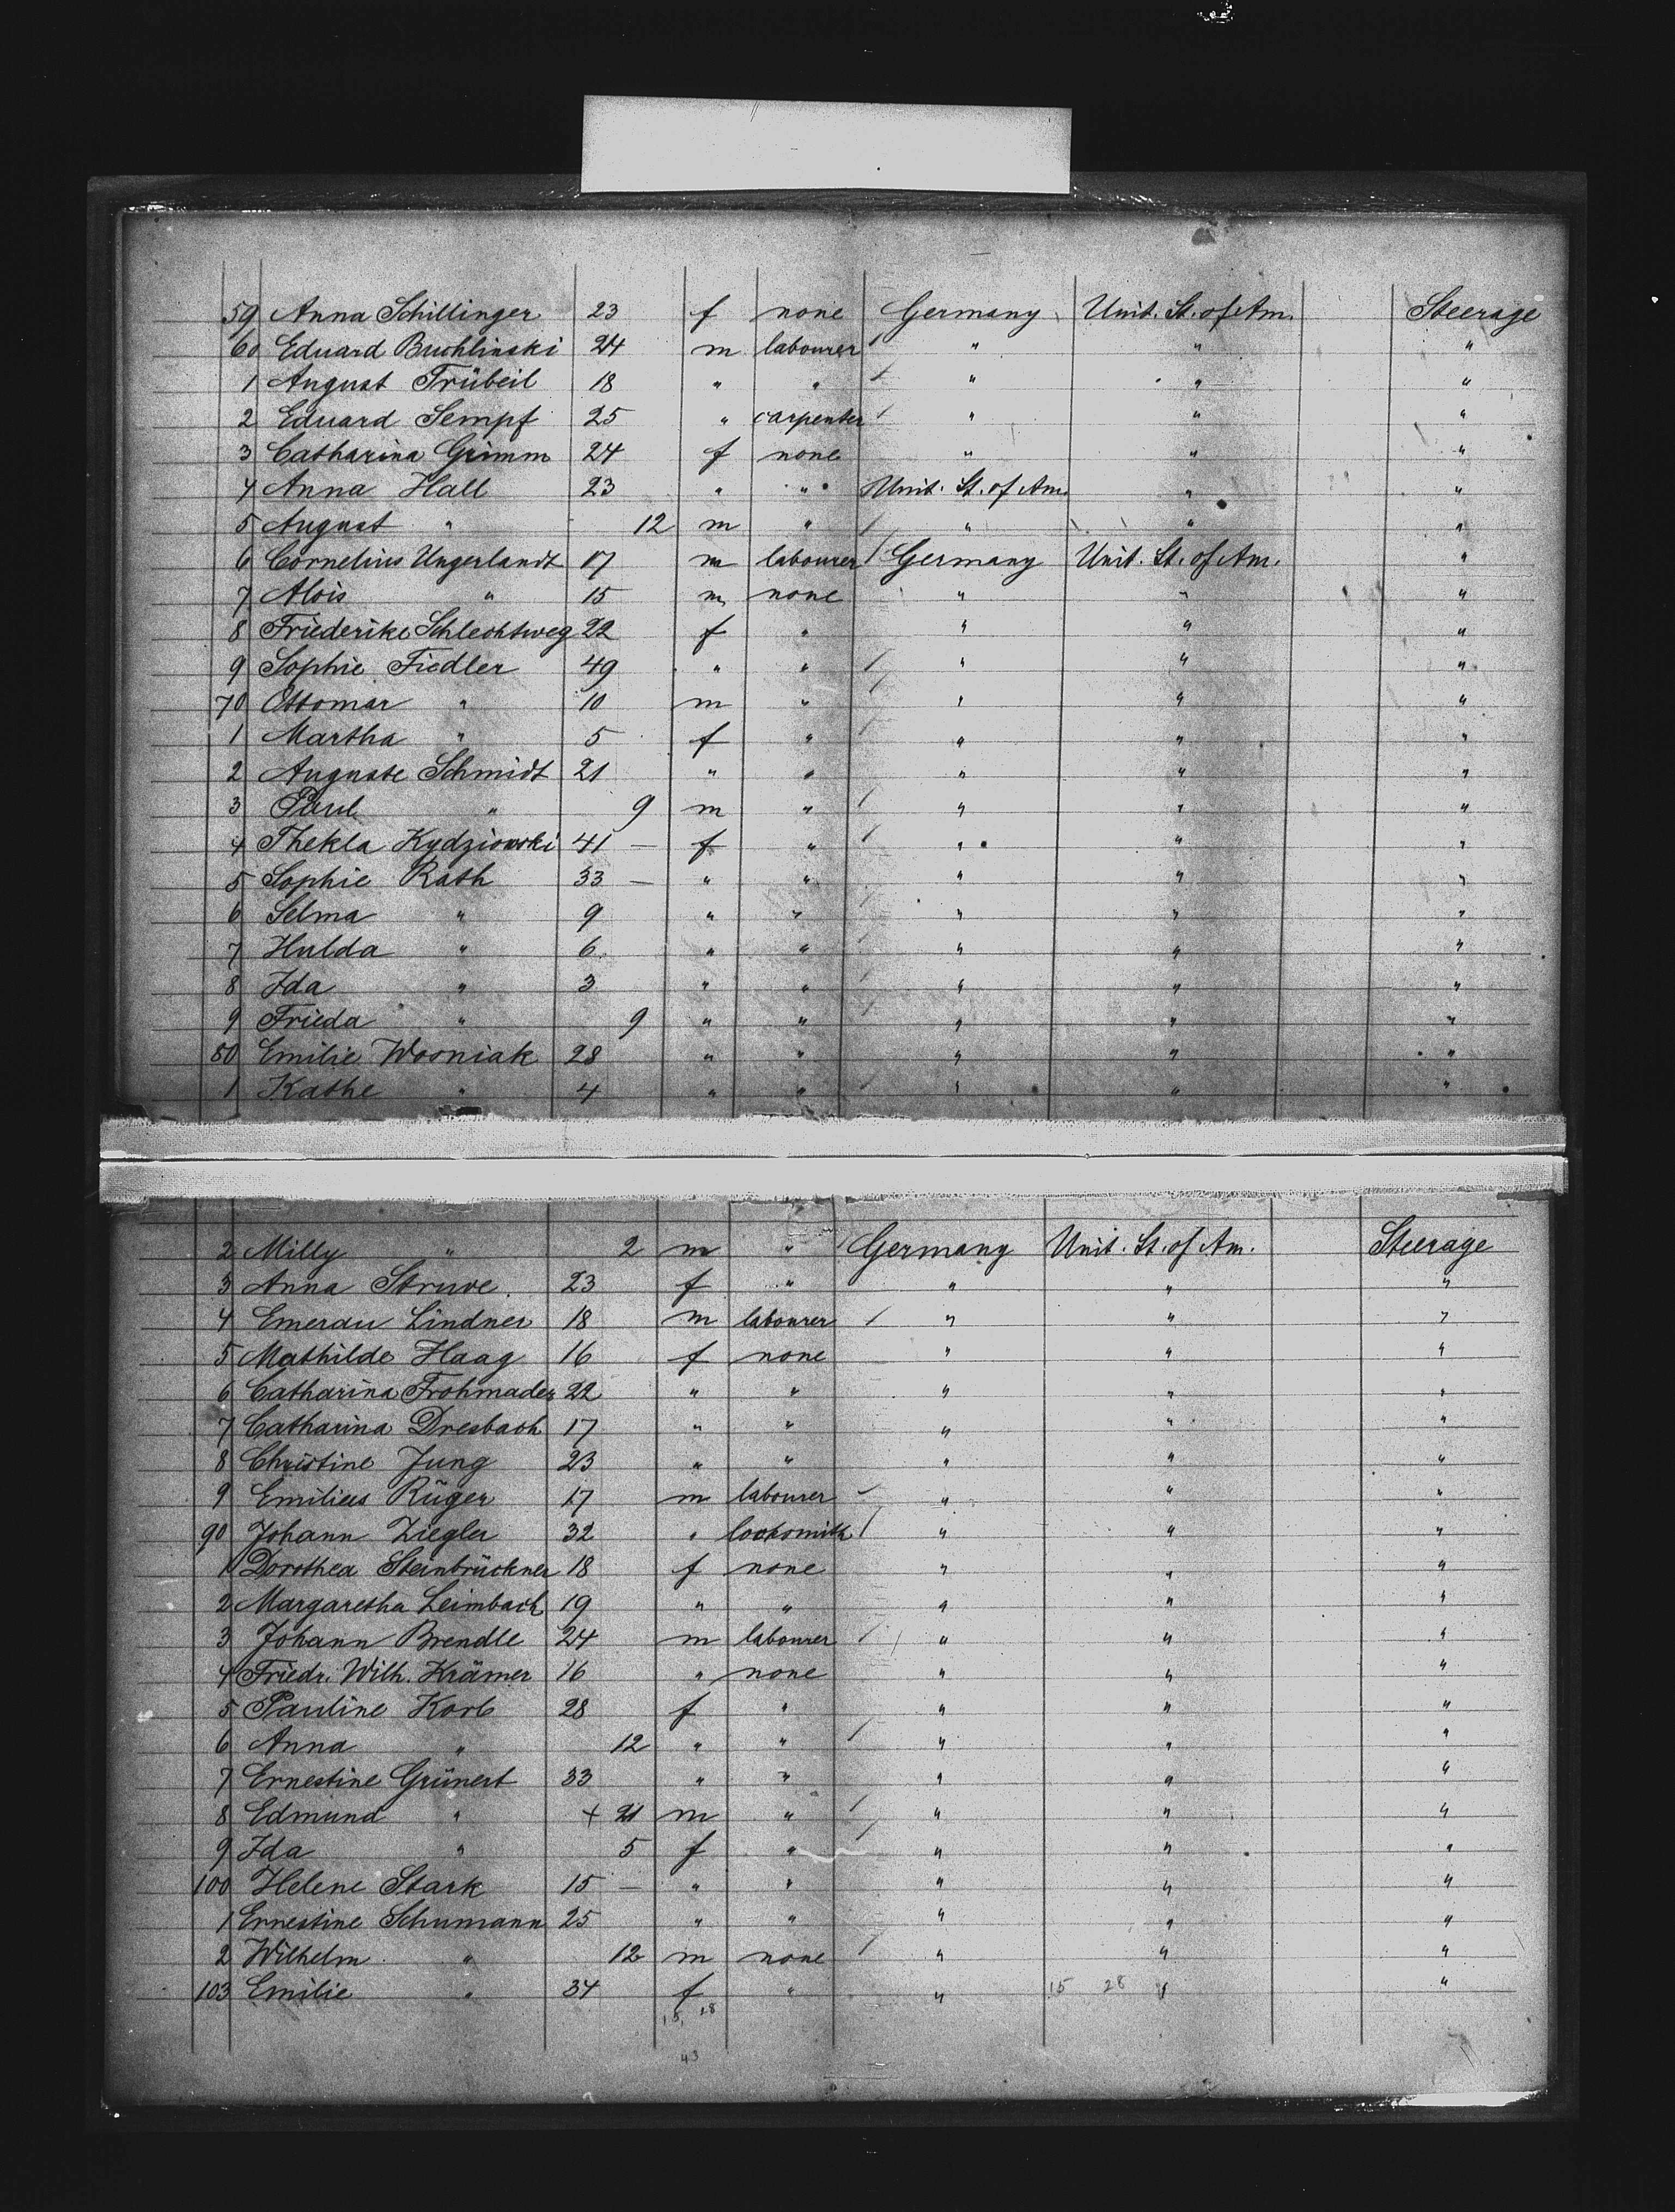 59 Anna Schillinger 23 f none Germany Unit. St. of Am. Steerage
60 Eduard Buchlinski 24 m labourer " " "
1 August Trübeil 18 " " " " "
2 Eduard Sempf 25 " carpenter " " "
3 Catharina Grimm 24 f none " " "
4 Anna Hall 23 " " Unit. St. of Am. " "
5 August " 12 m " " " "
6 Cornelius Ungerlandt 17 m labourer Germany Unit. St. of Am. "
7 Alois " 15 m none " " "
8 Friederike Schlechtweg 22 f " " " "
9 Sophie Fiedler 49 " " " " "
70 Ottomar " 10 m " " " "
1 Martha " 5 f " " " "
2 Auguste Schmidt 21 " " " " "
3 Paul " 9 m " " " "
4 Thekla Kydziowski 41 — f " " " "
5 Sophie Rath 33 — " " " " "
6 Selma " 9 " " " " "
7 Hulda " 6 " " " " "
8 Ida " 3 " " " " "
9 Frieda " 9 " " " " "
80 Emilie Wosniak 28 " " " " "
1 Kathe " 4 " " " " "
2 Milly " 2 m " Germany Unit. St. of Am. Steerage
3 Anna Struve 23 f " " " "
4 Lindner 18 m labourer " " "
5 Mathilde Haag 16 f none " " "
6 Catharina Frohmader 22 " " " " "
7 Catharina Dresbach 17 " " " " "
8 Christine Jung 23 " " " " "
9 Emilius Rüger 17 m labourer " " "
90 Johann Ziegler 32 " locksmith " " "
1 Dorothea Steinbrückner 18 f none " " "
2 Margaretha Leimbach 19 " " " " "
3 Johann Brendle 24 m labourer " " "
4 Friedr. Wilh. Krämer 16 " none " " "
5 Pauline Korb 28 f " " " "
6 Anna " 12 " " " " "
7 Ernestine Grünert 33 " " " " "
8 Edmund " + 21 m " " " "
9 Ida " 5 f " " " "
100 Helene Stark 15 — " " " " "
1 Ernestine Schumann 25 " " " " "
2 Wilhelm " 12 m none " " "
103 Emilie " 34 f " " 15 28 " "
15, 28
43